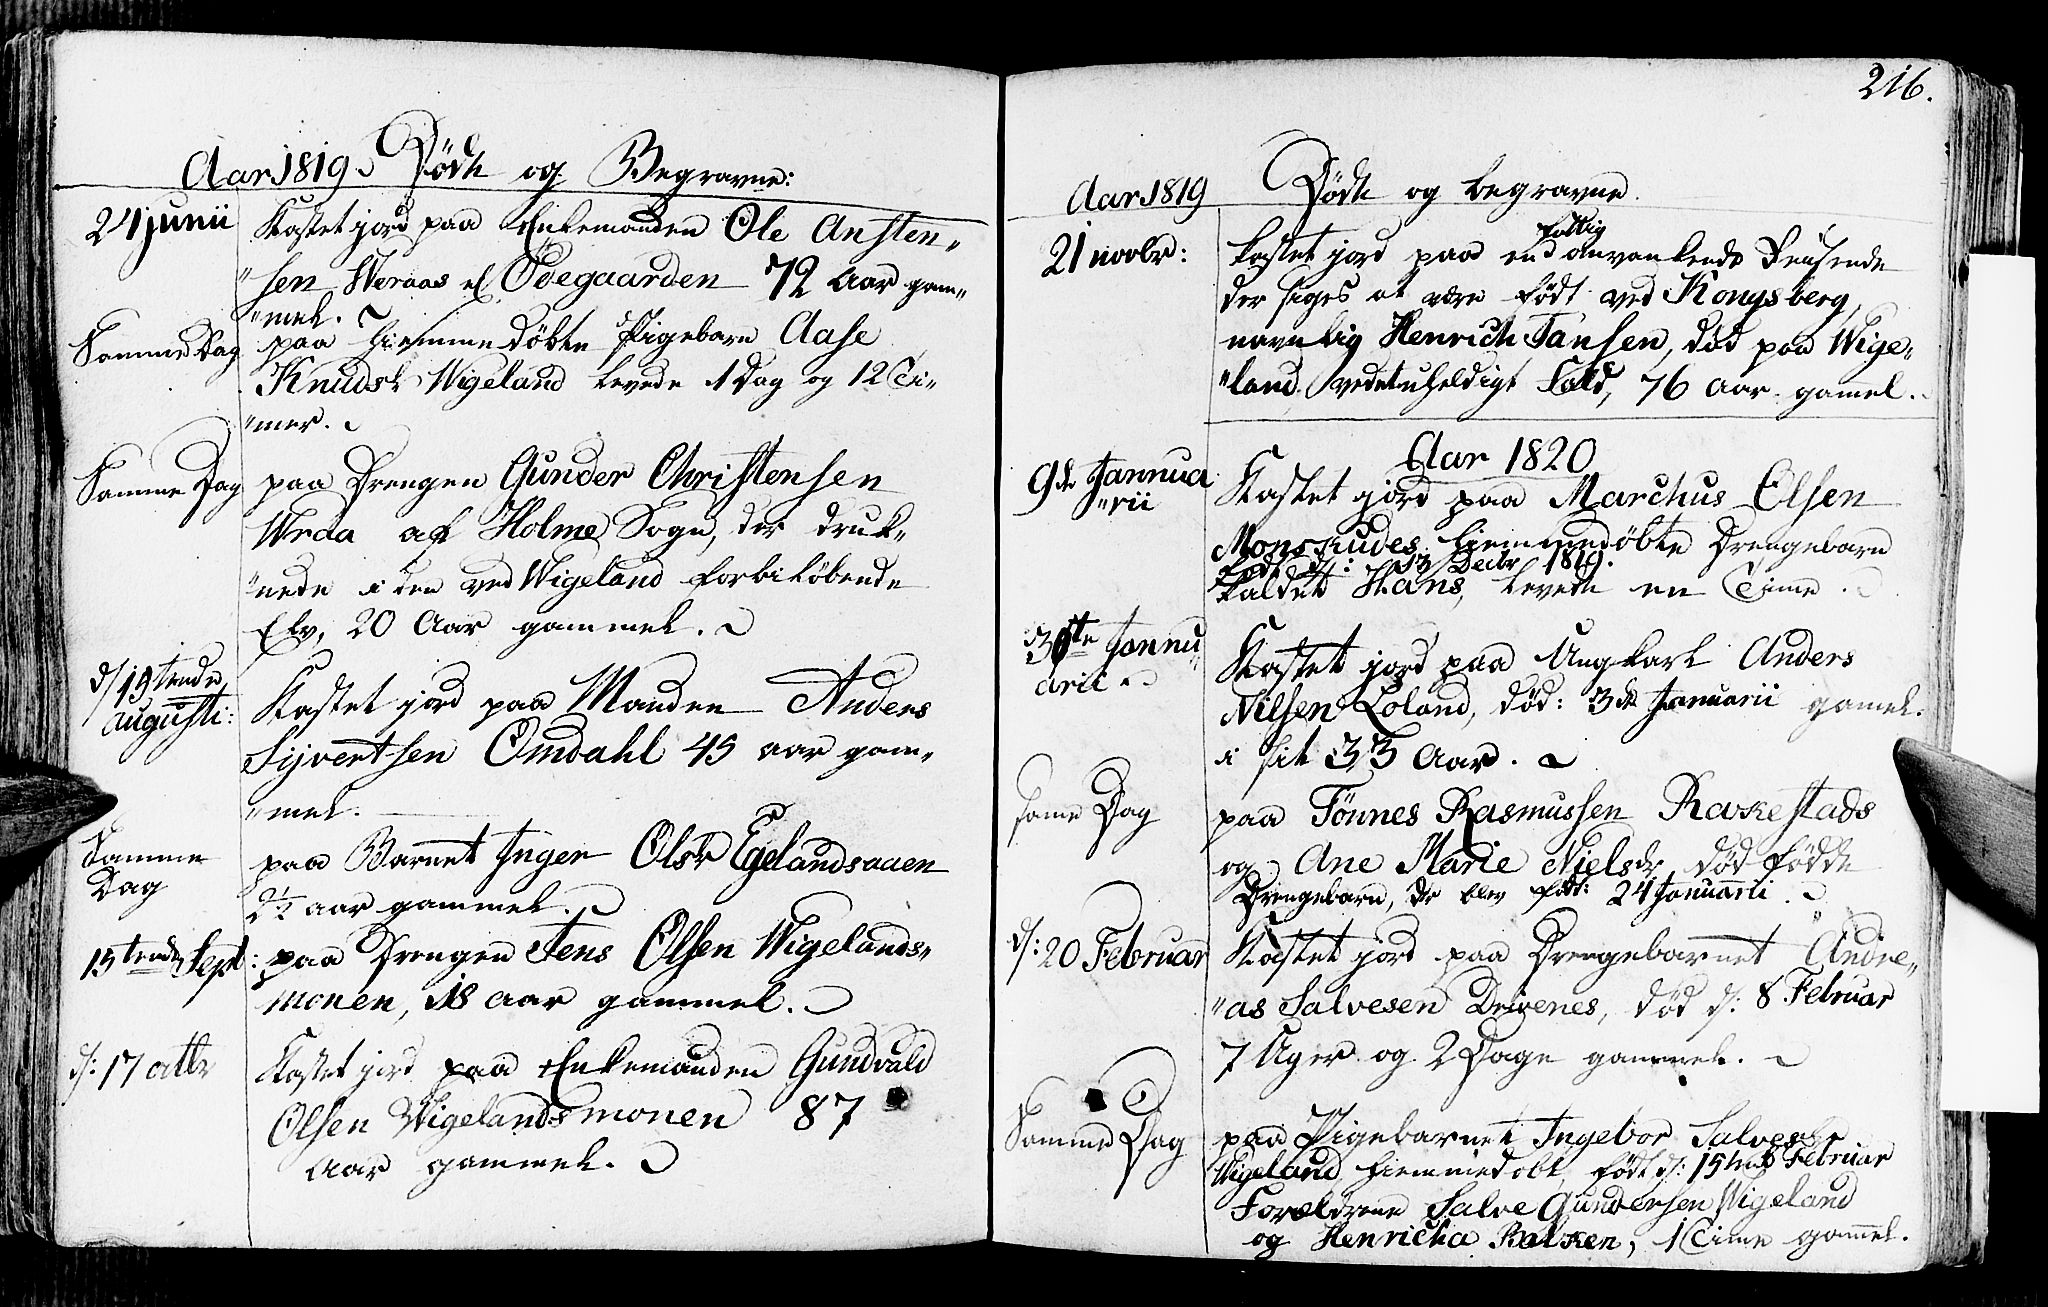 Aar 1819. Döde og Begravne:
24 junii Kastet jord paa Enkemanden Ole Ansten„
„sen Weraas el Ödegaarden 72 Aar gam„
„mel.
Samme Dag paa hiemmedöbte Pigebarn Aase
Knudsdr Wigeland levede 1 Dag og 12 Ti„
„mer.
Samme Dag paa Drengen Gunder Christensen
Wraa af Holme Sogn, der druk„
„nede i den ved Wigeland forbilöbende
Elv, 20 Aar gammel.
d/ 15tende augusti: Kastet jord paa Manden Anders
Sijvertsen Omdahl 45 aar gam„
„mel.
Samme Dag paa Barnet Inger Olsdr Egelandsaaen
2½ aar gammel.
15tende Sept: paa Drengen Jens Olsen Wigelands„
monen, 18 aar gammel.
d: 17 Kastet jord paa Enkemanden Gundvald
Olsen Wigelandsmonen 87
Aar gammel.
216.
Aar 1819 Döde og begravne
21 novbr: kastet jord paa end fattig omvankende Reisende
der siges at være födt ved Kongsberg,
navnlig Henrich Jansen, död paa Wige„
„land, ved et uheldigt Fald, 76 aar gammel.
Aar 1820
9de Jannua
„rii Kastet jord paa Marchus Olsen
Monskudes hiemmedöbte Drengebarn
födt d: Decbr 1819.
kaldet Hans, levede en Time.
30te Jannu
arii Kastet jord paa Ungkarl Anders
Nilsen Loland, död: 3de Januarii gamel.
i sit 33 Aar.
same Dag paa Tönnes Rasmussen Rakestads
og Ane Marie Nielsdr död födte
Drengebarn, der blev födt: 24 Januarii.
d: 20 Februar Kastet jord paa Drengebarnet Andre„
„as Salvesen Drivenes, död d: 8 Februar
7 Uger og 2 Dage gammel.
Samme Dag paa Pigebarnet Ingebor Salvesdr
Wigeland hiemmedöbt, födt d: 15tende Februar
Forældrene Salve Gundersen Wigeland
og Henricha, 1 Time gammel.